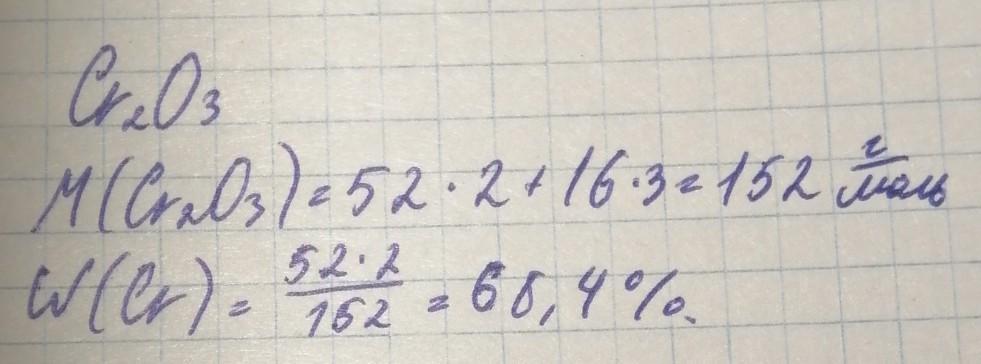 Cr₂O₃
M(Cr₂O₃) = 52 · 2 + 16 · 3 = 152 г/моль
W(Cr) = 52 · 2 / 152 = 68,4 %.